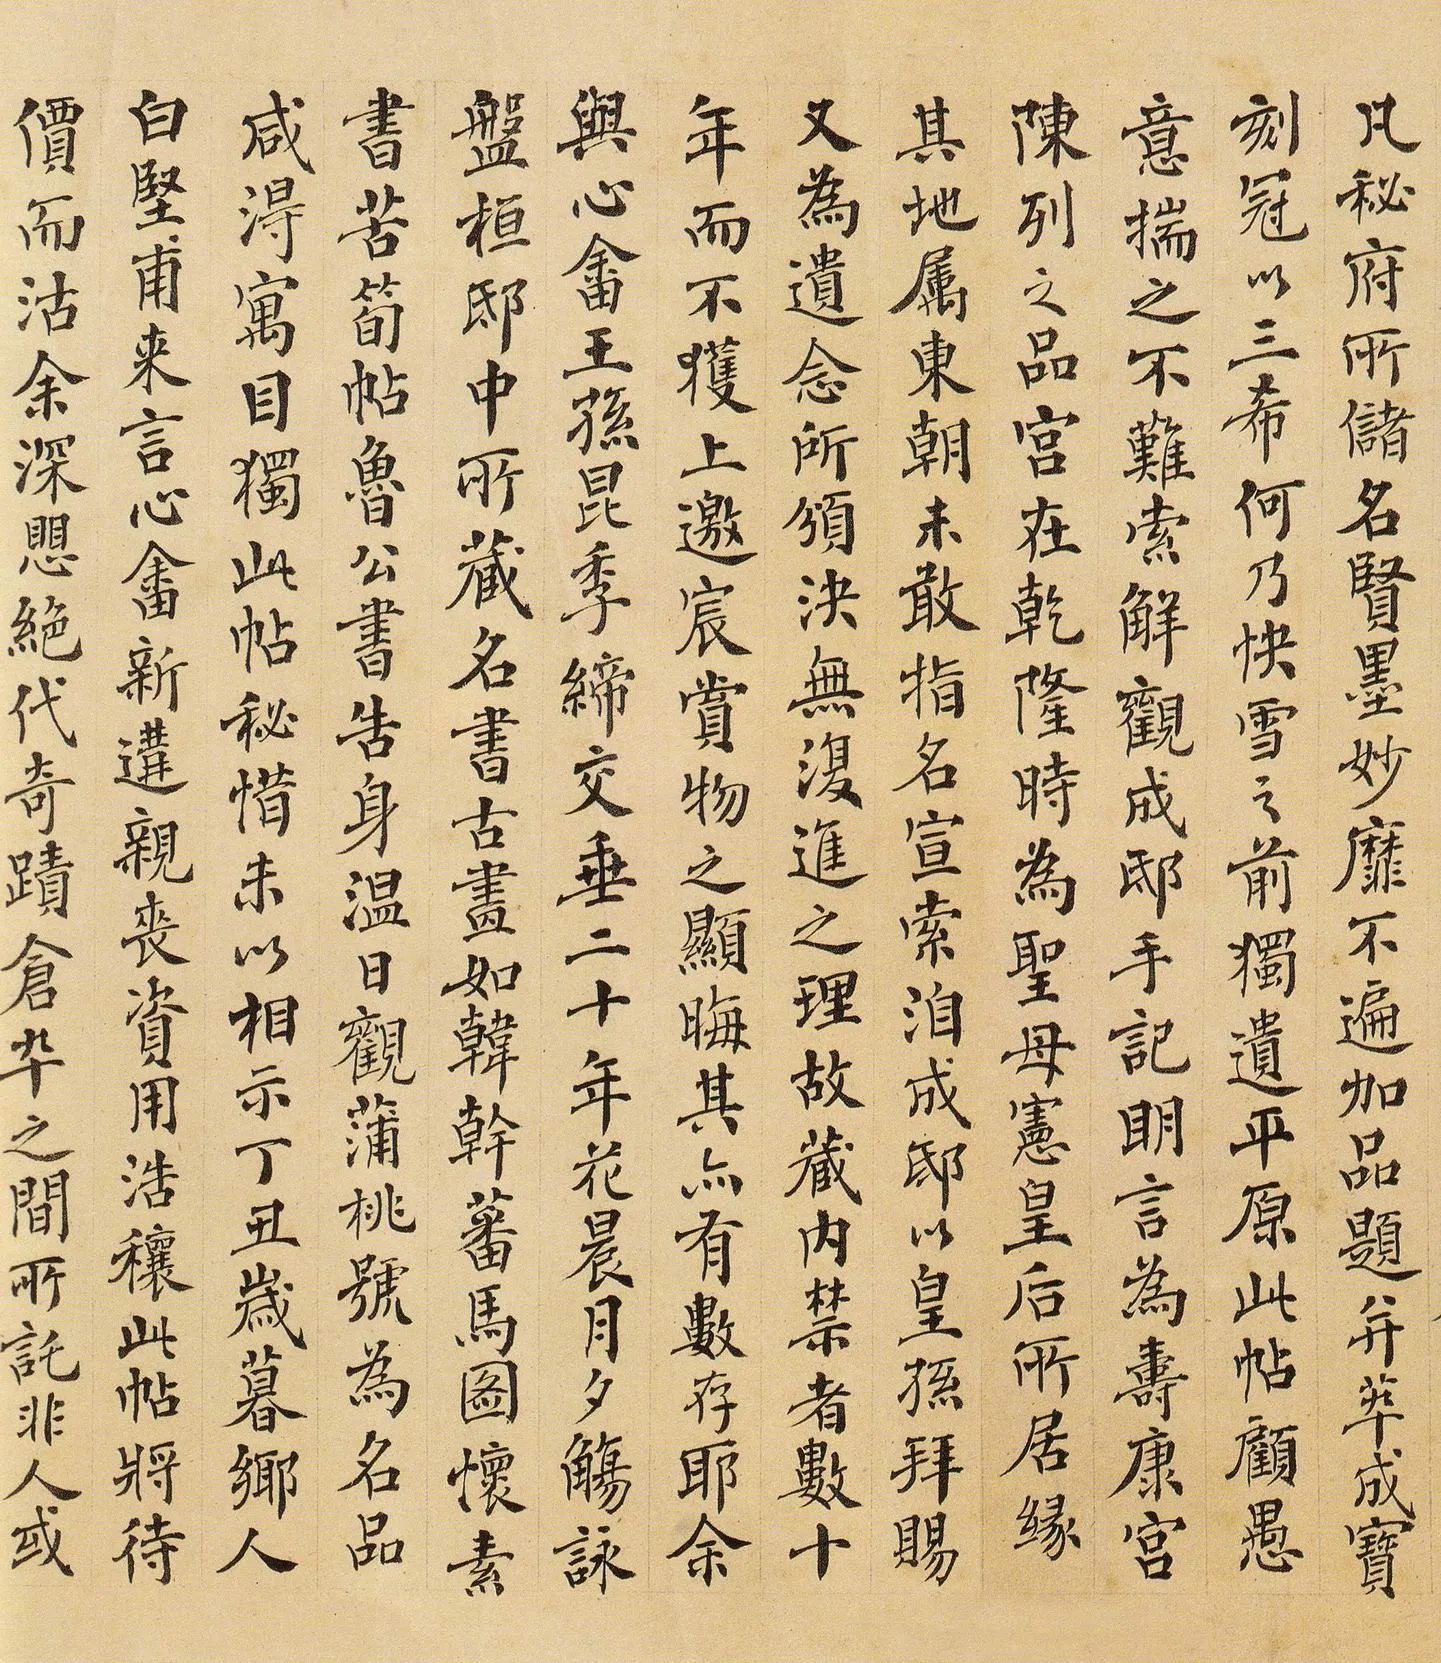 凡秘府所儲名賢墨妙靡不遍加品題并萃成寶
刻冠以三希何乃快雪之前獨遺平原此帖顧愚
意揣之不難索解觀成邸手記明言為壽康宮
陳列之品宮在乾隆時為聖母憲皇后所居緣
其地属東朝未敢指名宣索洎成邸以皇孫拜賜
又為遺念所頒決無復進之理故藏内禁者數十
年而不獲上邀宸賞物之顯晦其亦有數存耶余
與心畬王孫昆季締交垂二十年花晨月夕觴詠
盤桓邸中所藏名書古畫如韓幹蕃馬圖懷素
書苦筍帖魯公書告身温日觀蒲桃號為名品
咸得寓目獨此帖秘惜未以相示丁丑歲暮鄉人
白堅甫来言心畬新遘親喪資用浩穰此帖將待
價而沽余深思絕代奇蹟倉卒之間所託非人或